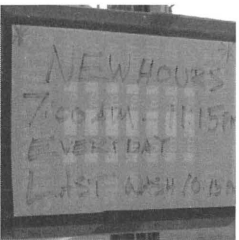 NEW HOURS
7:00 AM - 11:15P
EVERYDAY
LAST WASH 10:15P